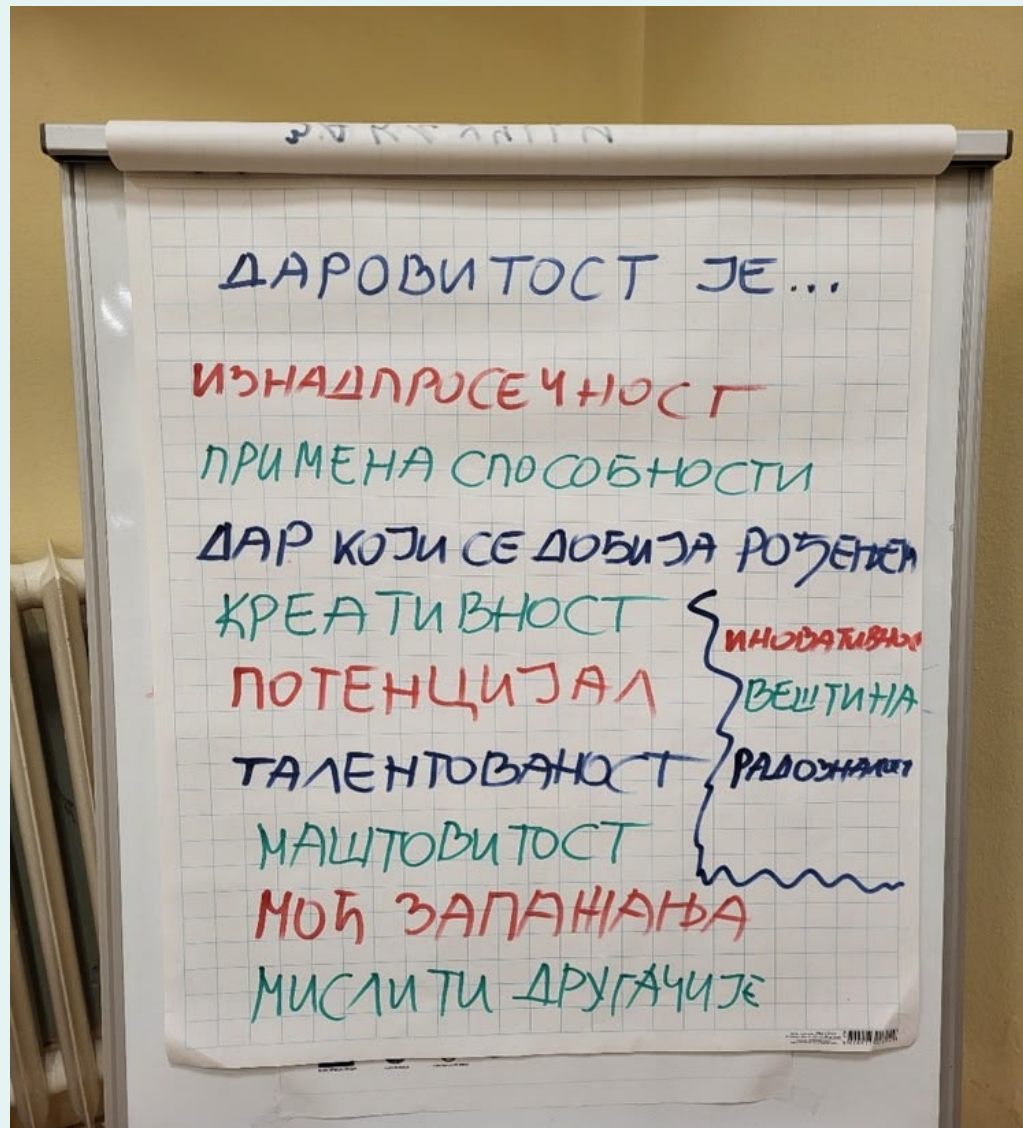 ДАРОВИТОСТ ЈЕ...
ИЗНАДПРОСЕЧНОСТ
ПРИМЕНА СПОСОБНОСТИ
ДАР КОЈИ СЕ ДОБИЈА РОЂЕЊЕМ
КРЕАТИВНОСТ
ПОТЕНЦИЈАЛ
ТАЛЕНТОВАНОСТ
МАШТОВИТОСТ
МОЋ ЗАПАЖАЊА
МИСЛИТИ ДРУГАЧИЈЕ
ИНОВАТИВНОС
ВЕШТИНА
РАДОЗНАЛОСТ